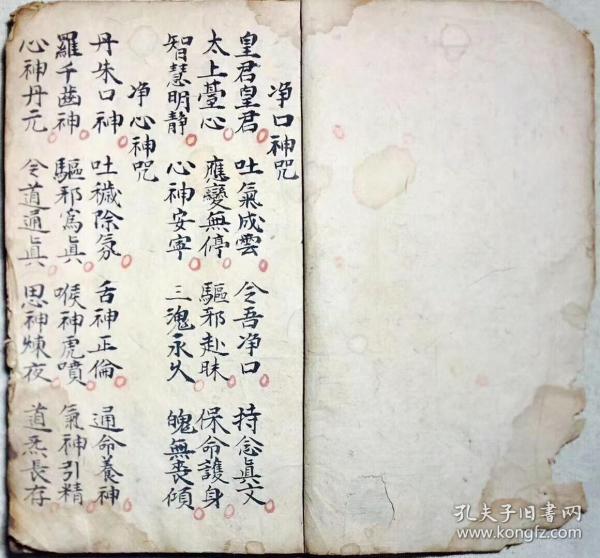 净口神咒
皇君皇君 吐氣成雲 令吾净口 持念真文
太上臺心 應變無停 驅邪赴昧 保命護身
智慧明静 心神安寧 三魂永久 魄無喪傾
净心神咒
丹朱口神 吐穢除氛 舌神正倫 通命養神
羅千齒神 驅邪爲真 喉神虎噴 氣神引精
心神丹元 令道通真 思神煉夜 道炁長存
孔夫子旧书网
www.kongfz.com